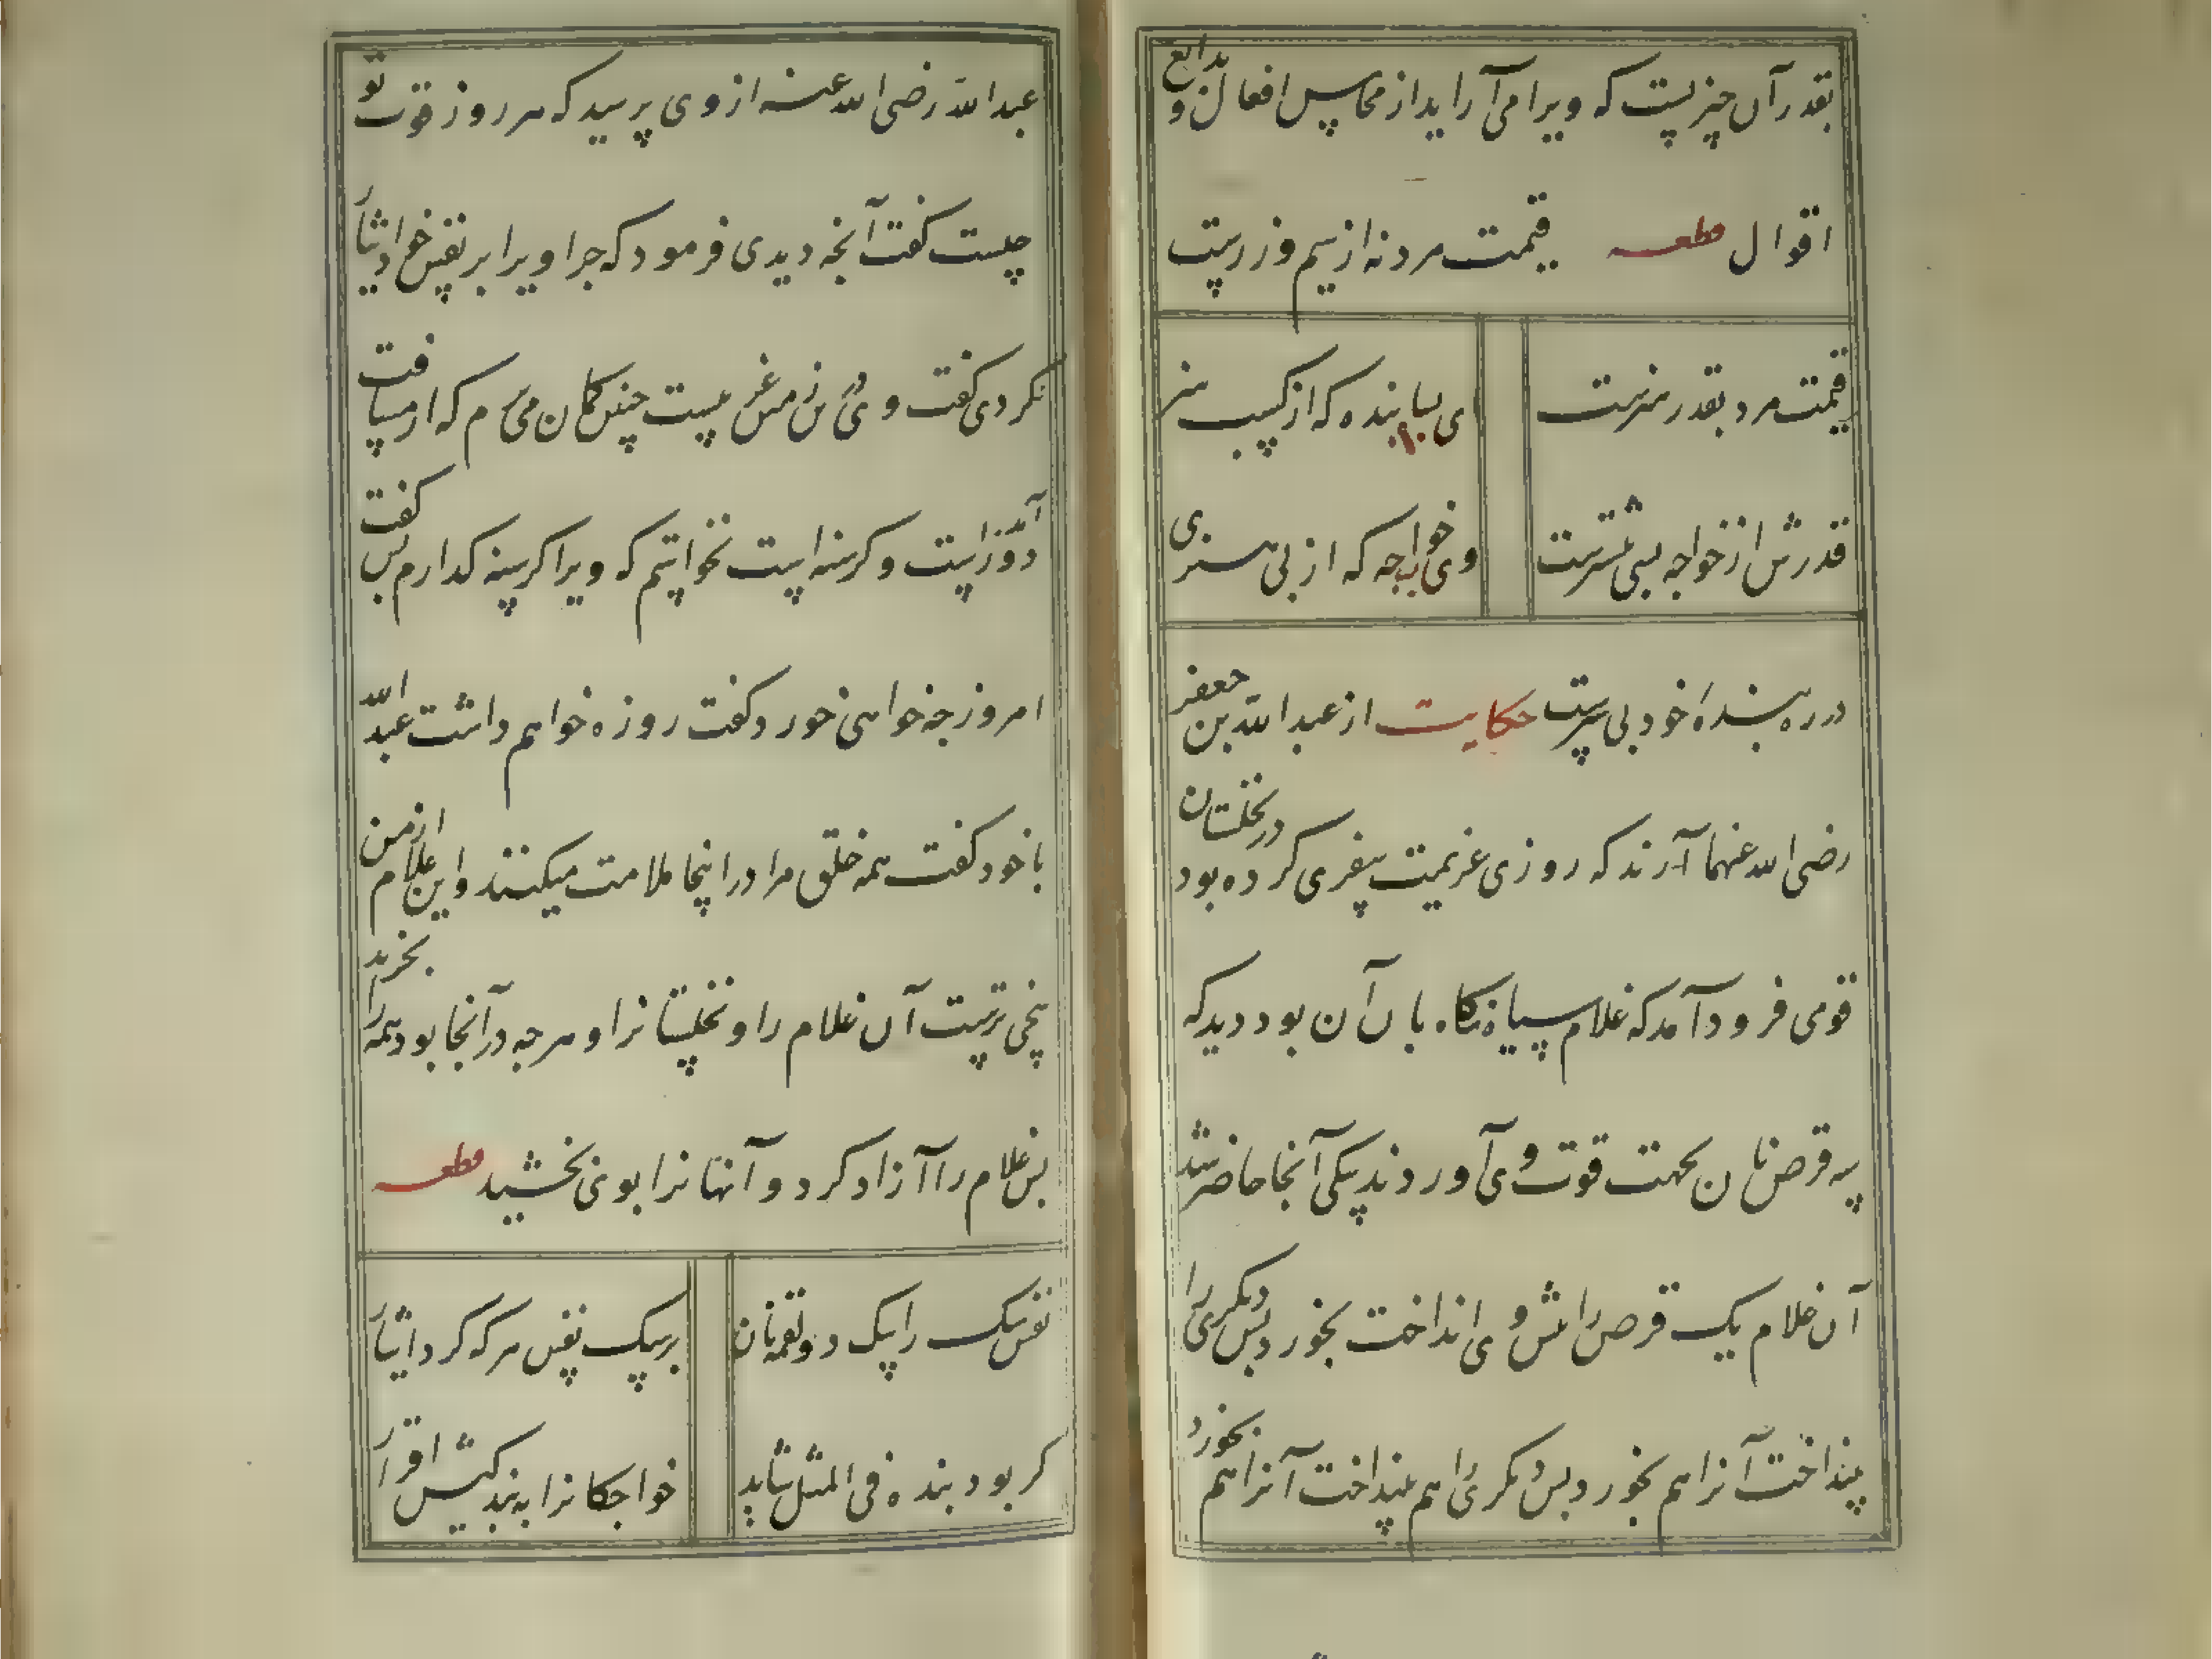 بقدر آن چیزیست که ویرا می آراید از محاسن افعال و بدایع
اقوال قطعه قیمت مرد نه از سیم و زرست
قیمت مرد بقدر هنرست ای بسا بنده که از کسب هنر
قدرش از خواجه بسی بیشترست وی بسا خواجه که از بی هنری
در ره بندهٔ خود بی سپرست حکایت از عبد الله بن جعفر
رضی الله عنهما آرند که روزی عزیمت سفری کرده بود در نخلستان
قومی فرود آمد که غلام سیاه نگاهبان آن بود دید که
سه قرص نان بجهت قوت وی آوردند سگی آنجا حاضر شد
آن غلام یک قرص را پیش وی انداخت بخورد پس دیگری را
بینداخت آنرا هم بخورد پس دیگری را هم بینداخت آنرا هم بخورد
عبد الله رضی الله عنه از وی پرسید که هر روز قوت تو
چیست گفت آنچه دیدی فرمود که چرا ویرا بر نفس خود ایثار
نکردی گفت وی درین زمین غریبست چنین گمان می برم که از مسافت
دور آمده است و گرسنه است نخواستم که ویرا گرسنه گذارم پس گفت
امروز چه خواهی خورد گفت روزه خواهم داشت عبد الله
با خود گفت همه خلق مرا در اینجا ملامت میکنند و این غلام از من
سخی ترست آن غلام را و نخلستانرا و هر چه در آنجا بود همه را بخرید
پس غلام را آزاد کرد و آنها نرا بوی بخشید قطعه
نفس سگ را بیک دو لقمه نان بر سگ نفس هر که کرد ایثار
گر بود بنده فی المثل شاید خواجگانرا به بندگیش اقرار